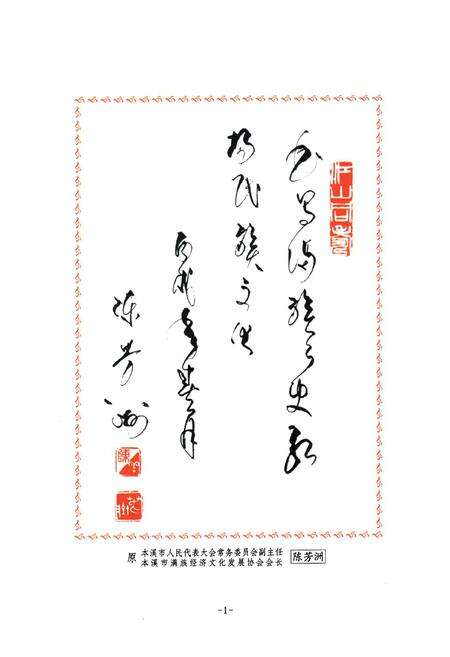 书写满族之史 弘
扬民族文化
丙戌年春月
陈芳洲
原 本溪市人民代表大会常务委员会副主任
本溪市满族经济文化发展协会会长 陈芳洲
-1-